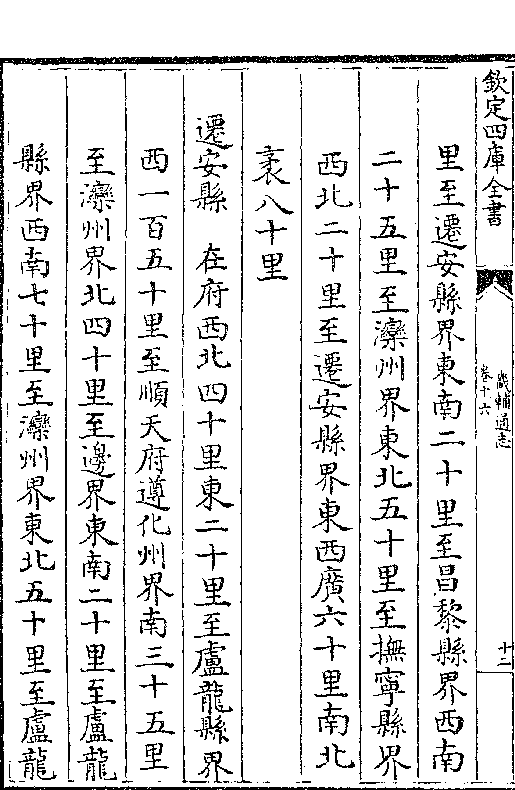 欽定四庫全書
畿輔通志
卷十六
十二
里至遷安縣界東南二十里至昌黎縣界西南
二十五里至灤州界東北五十里至撫寧縣界
西北二十里至遷安縣界東西廣六十里南北
袤八十里
遷安縣　在府西北四十里東二十里至盧龍縣界
西一百五十里至順天府遵化州界南三十五里
至灤州界北四十里至邊界東南二十里至盧龍
縣界西南七十里至灤州界東北五十里至盧龍